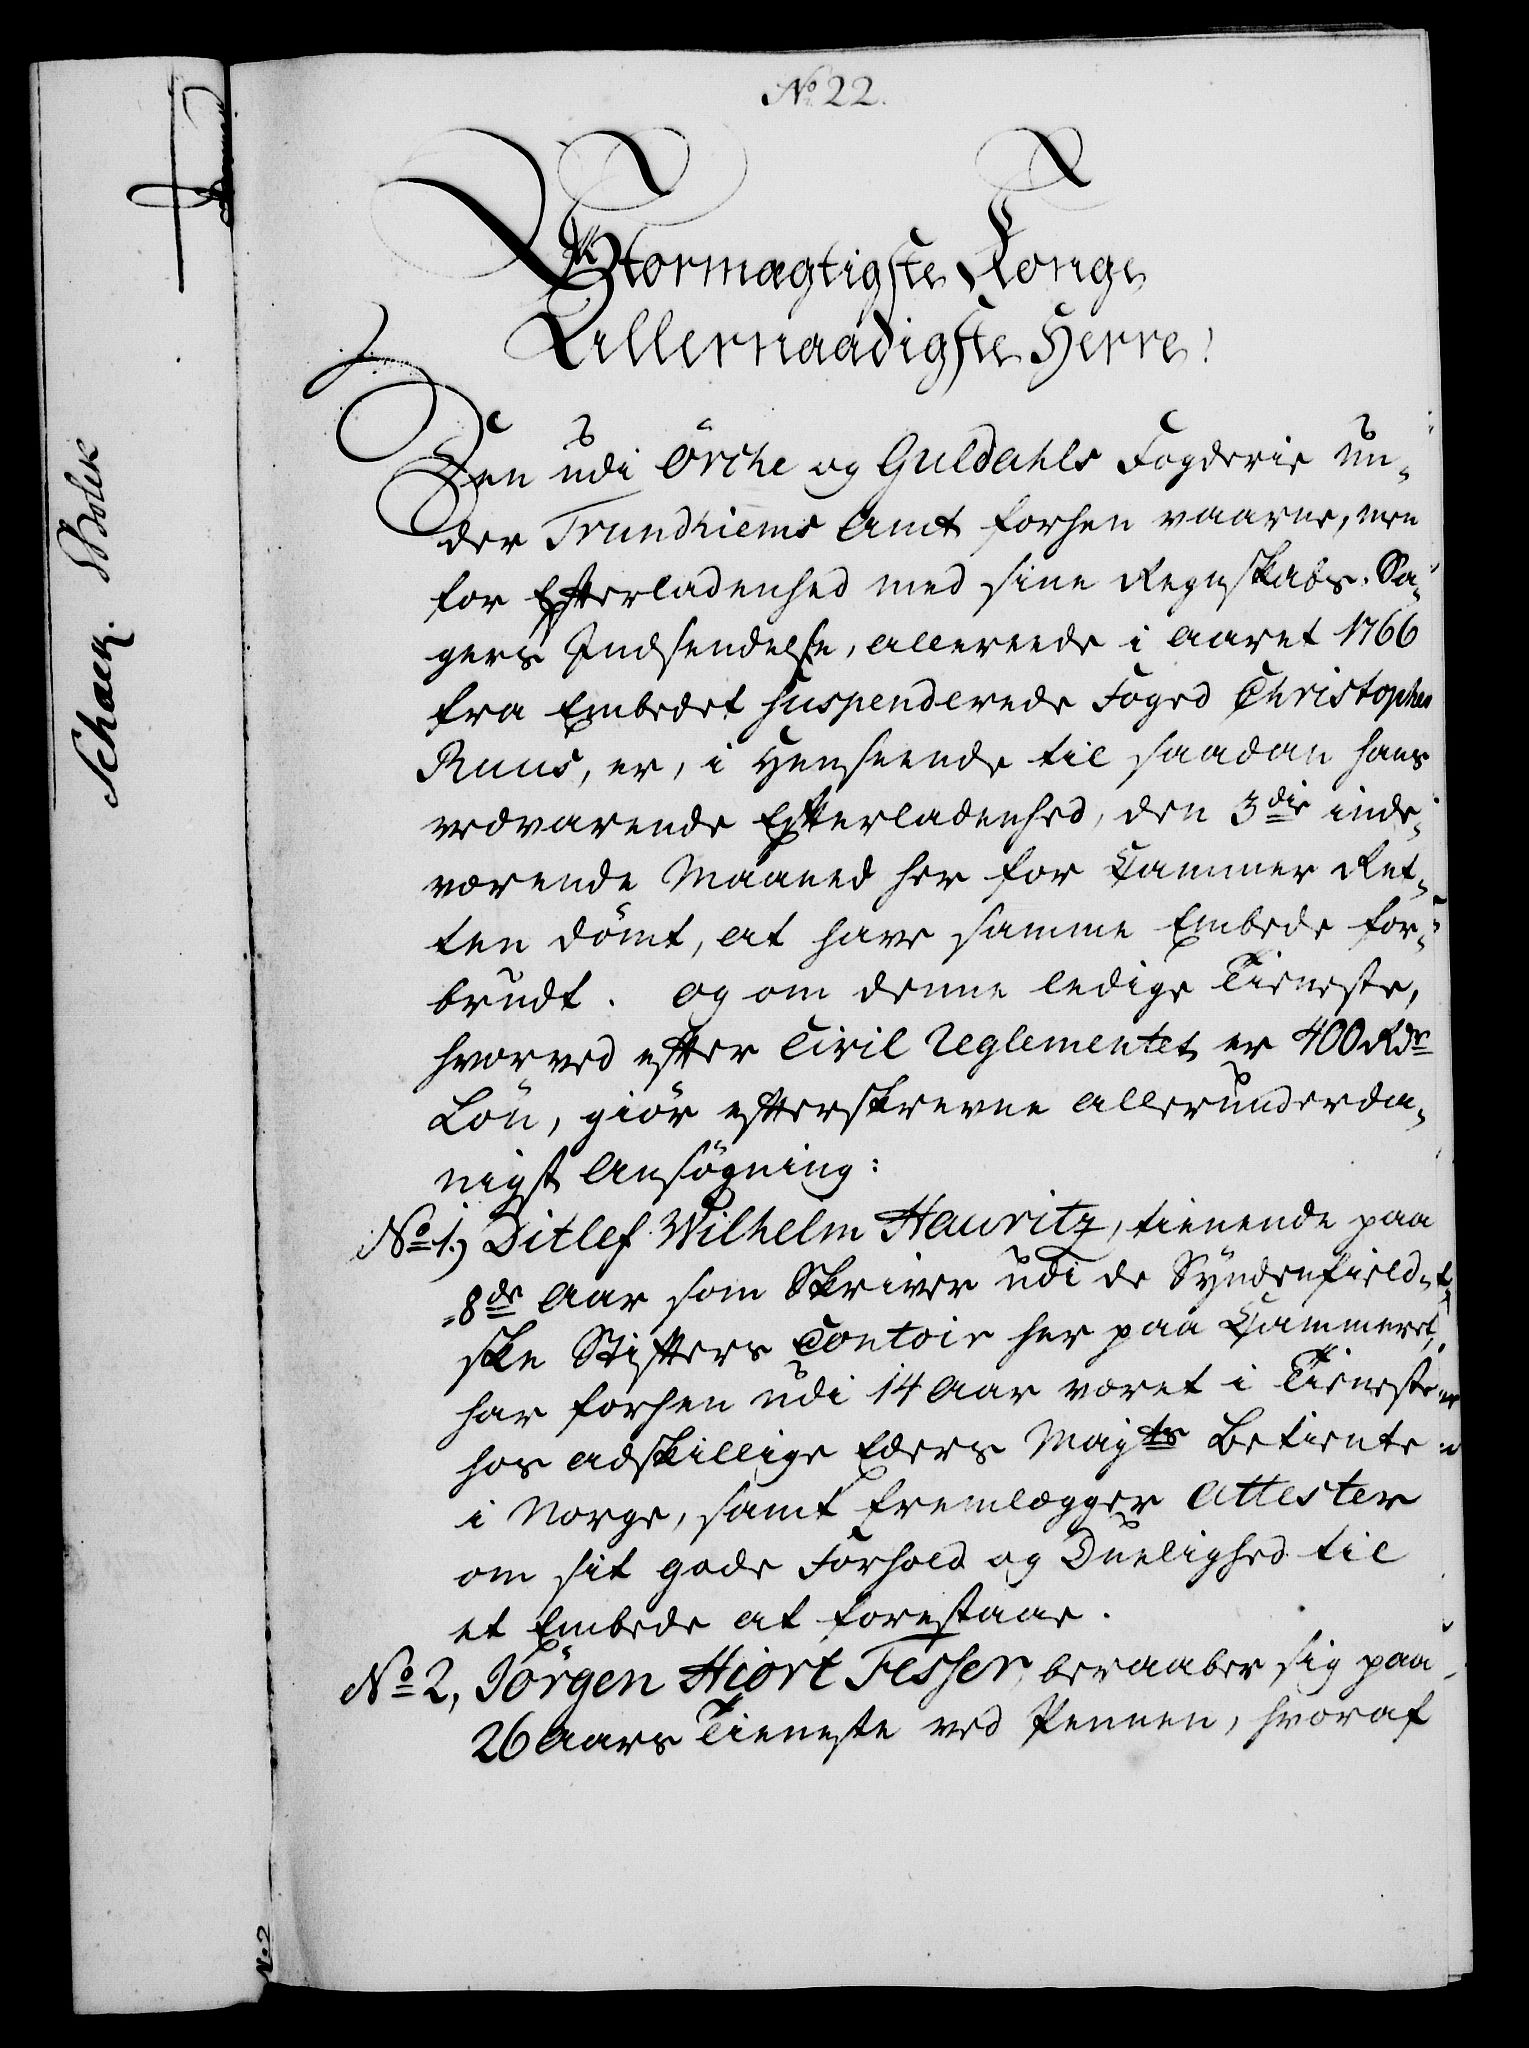 No 22.
Stormægtigste Konge
Allernaadigste Herre!
Den udi Örche og Guldahls Fogderie un-
der Trundhiems Amt forhen værne, men
for Efterladenhed med sine Regnskabs Sa-
gers Indsendelse, allerede i Aaret 1766
fra Embedet suspenderede Foged Christopher
Ruus, er, i Henseende til saadan hans
vedvarende Efterladenhed, den 3die inde-
værende Maaned her for Cammer Ret-
ten dömt, at have samme Embede for-
brudt. Og om denne ledige Tieneste,
hvorved efter Civil Reglementet er 400 Rdr
Lön, giör efterskrevne allerunderda-
nigst Ansögning:
No 1.) Ditlef Wilhelm Hauritz, tienende paa
8de Aar som Skriver udi de Syndenfield-
ske Stifters Contoir her paa Cammeret,
har forhen udi 14 Aar været i Tieneste
hos adskillige Eders Mayts Betiente
i Norge, samt fremlægger Attester
om sit gode Forhold og Duelighed til
et Embede at forestaae.
No 2, Jörgen Hiort Fesser, beraaber sig paa
26 Aars Tieneste ved Pennen, hvoraf
Schack.
No 2